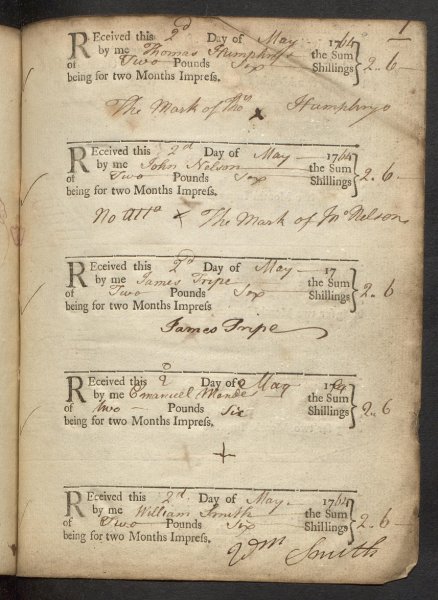 1
Received this 2d Day of May 1764
by me Thomas Humphrys the Sum
of Two Pounds Six Shillings 2 „ 6 —
being for two Months Impreſs.
The Mark of Thos x Humphrys
Received this 2d Day of May 1764
by me John Nelson the Sum
of Two Pounds Six Shillings 2 „ 6 —
being for two Months Impreſs.
x The Mark of Jno Nelson
Received this 2d Day of May 17
by me James Tripe the Sum
of Two Pounds Six Shillings 2 „ 6
being for two Months Impreſs.
James Tripe
Received this 2 Day of May 1764
by me Emanuel the Sum
of two Pounds Six Shillings 2 „ 6
being for two Months Impreſs.
+
Received this 2d Day of May 1764
by me William Smith the Sum
of Two Pounds Six Shillings 2 „ 6 —
being for two Months Impreſs.
Wm Smith